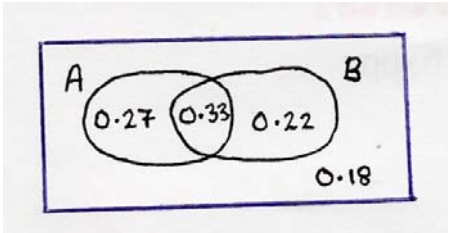 A B
0.27 0.33 0.22
0.18